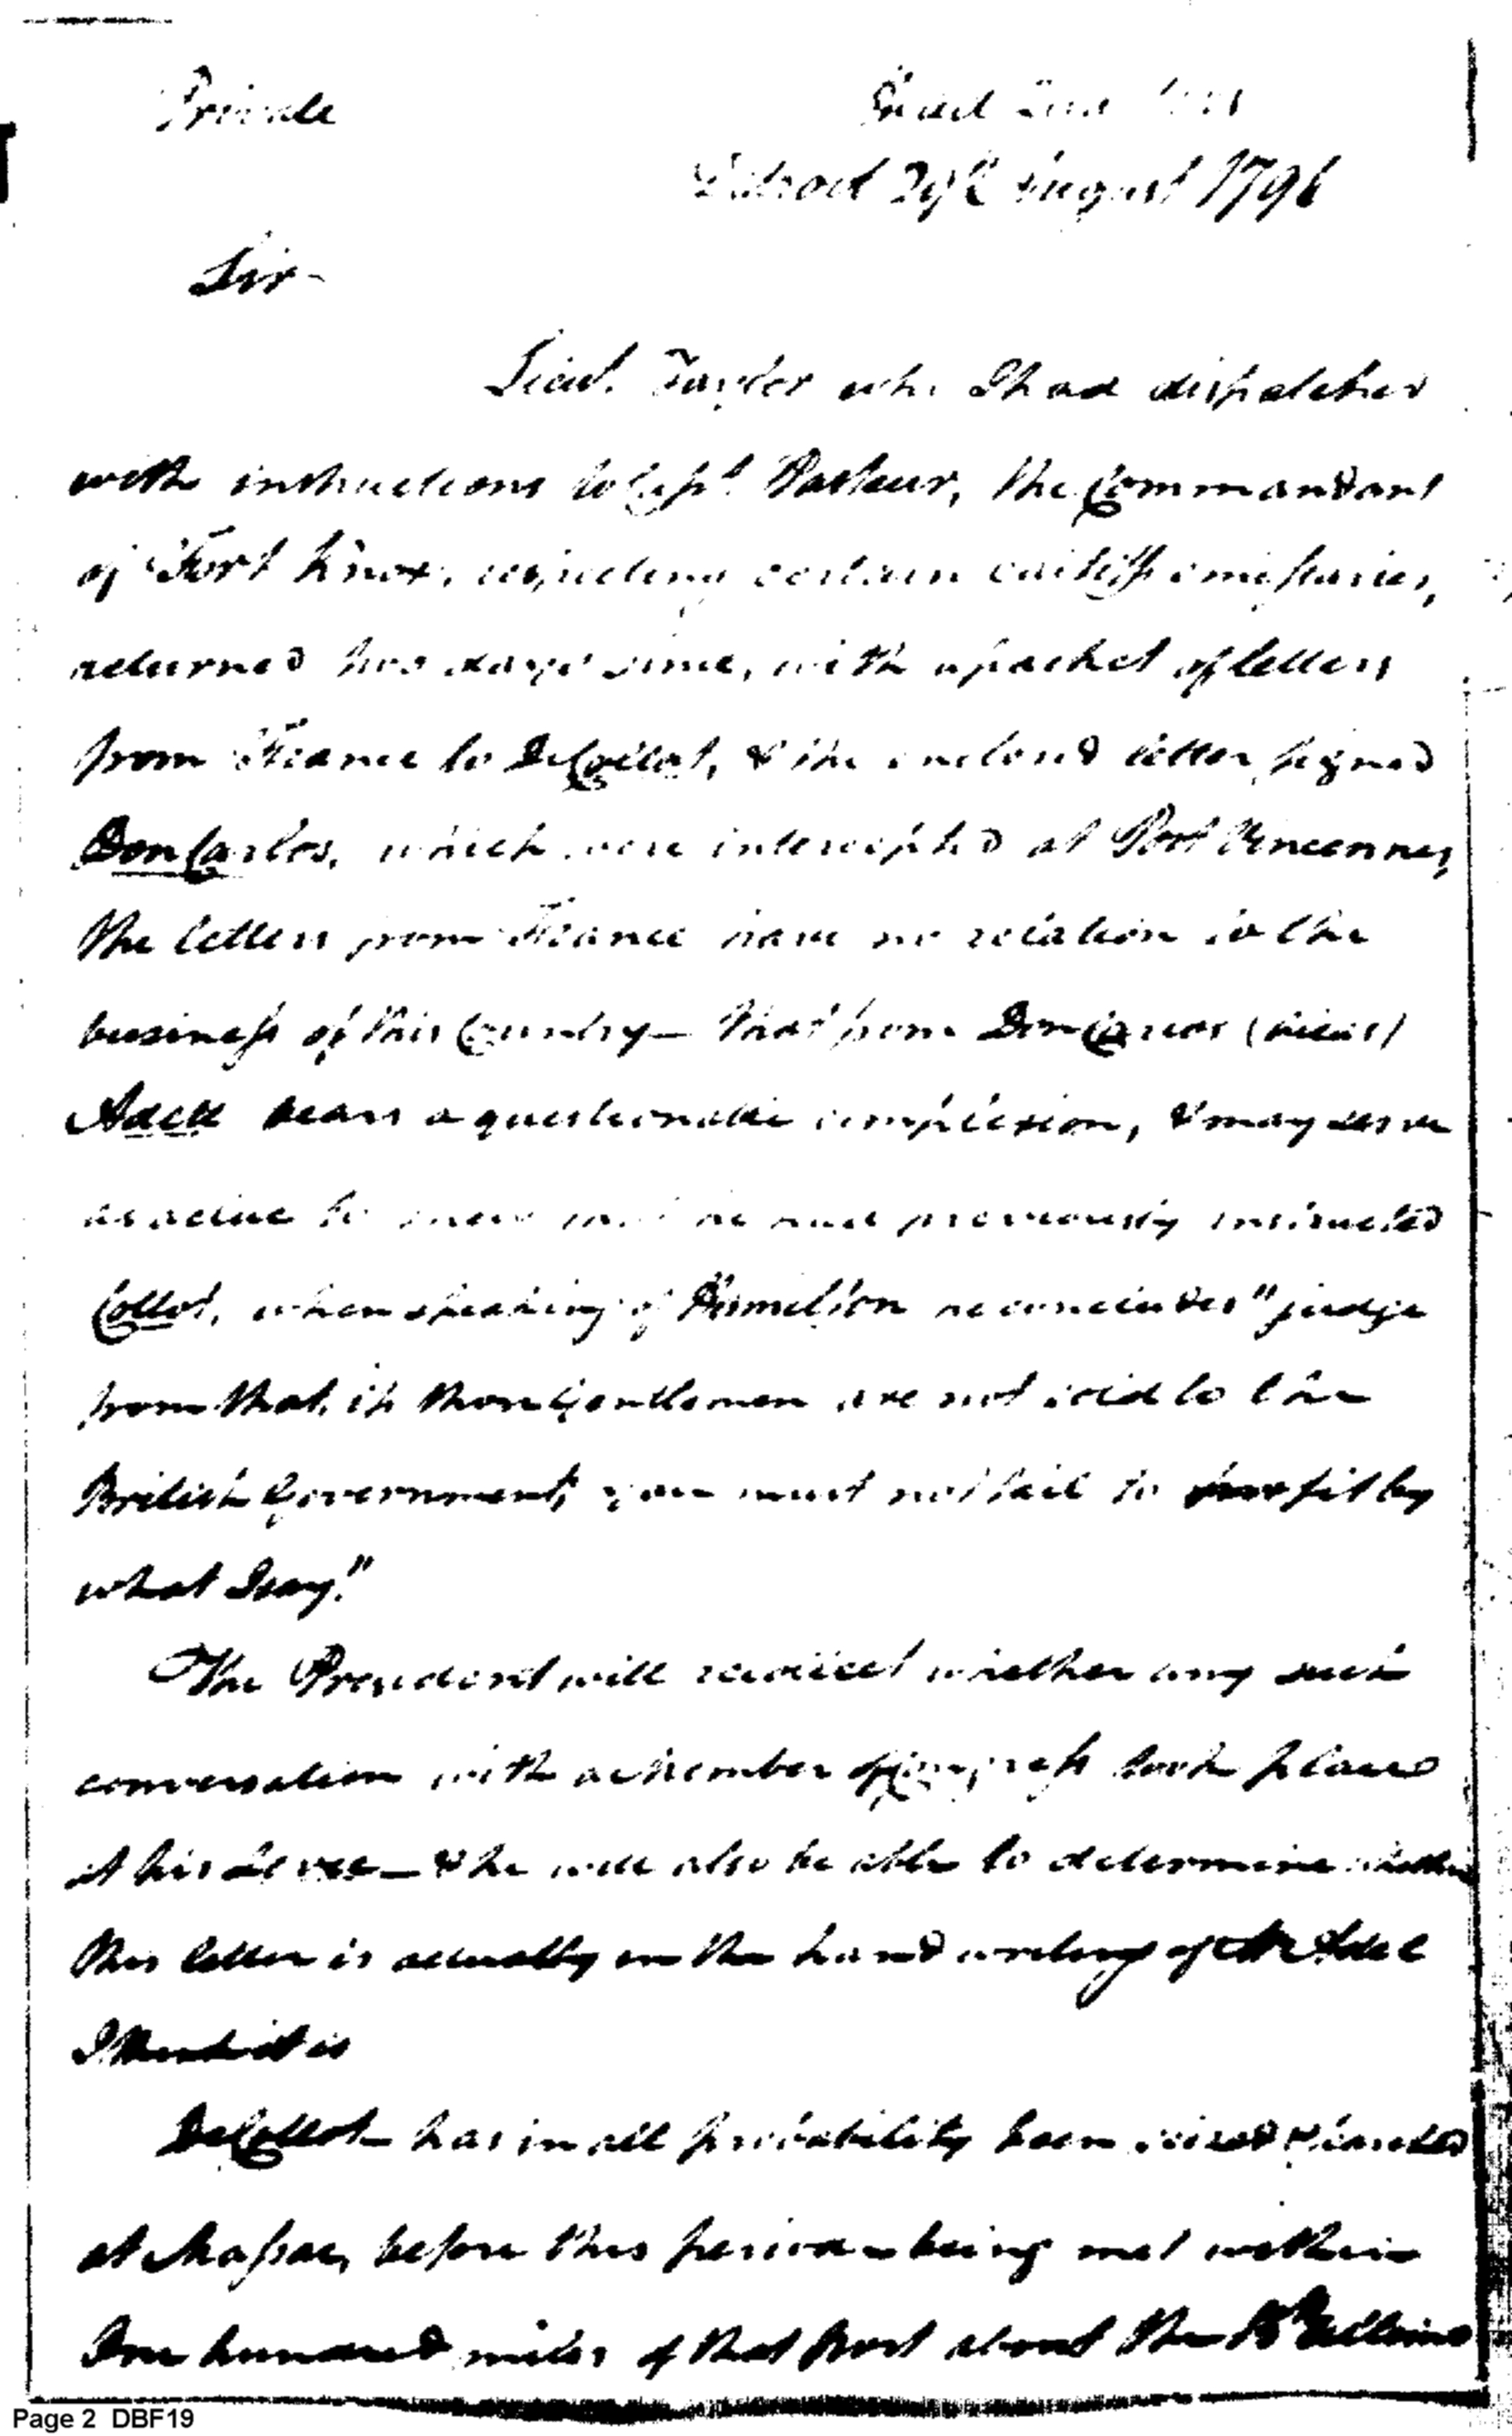 Private
Detroit 29th August 1796
Sir-
Lieut. Taylor who I had dispatched
with instructions to Capt. Pasteur, the Commandant
of Fort Knox, respecting certain caitiff emissaries,
returned two days since, with a packet of letters
from France to DeCollot, & the inclosed letter signed
Don Carlos, which were intercepted at Post Vincennes,
the letters from France have no relation to the
business of this Country - that from Don Carlos (alias)
Adett bears a questionable complexion, & may serve
as a clue to previously instructed
Collot, when speaking of Hamilton he concludes "judge
from that, if those Gentlemen are not sold to the
British Government, you must not fail to profit by
what I say."
The President will recollect whether any such
conversation with a Member of Congress took place
at his Levee - & he will also be able to determine whether
this letter is actually in the hand writing of Mr Adet
I think it is
DeCollot has in all probability been seized & searched
at Massac, before this period - being met within
One hundred miles of that Post about the
Page 2 DBF19